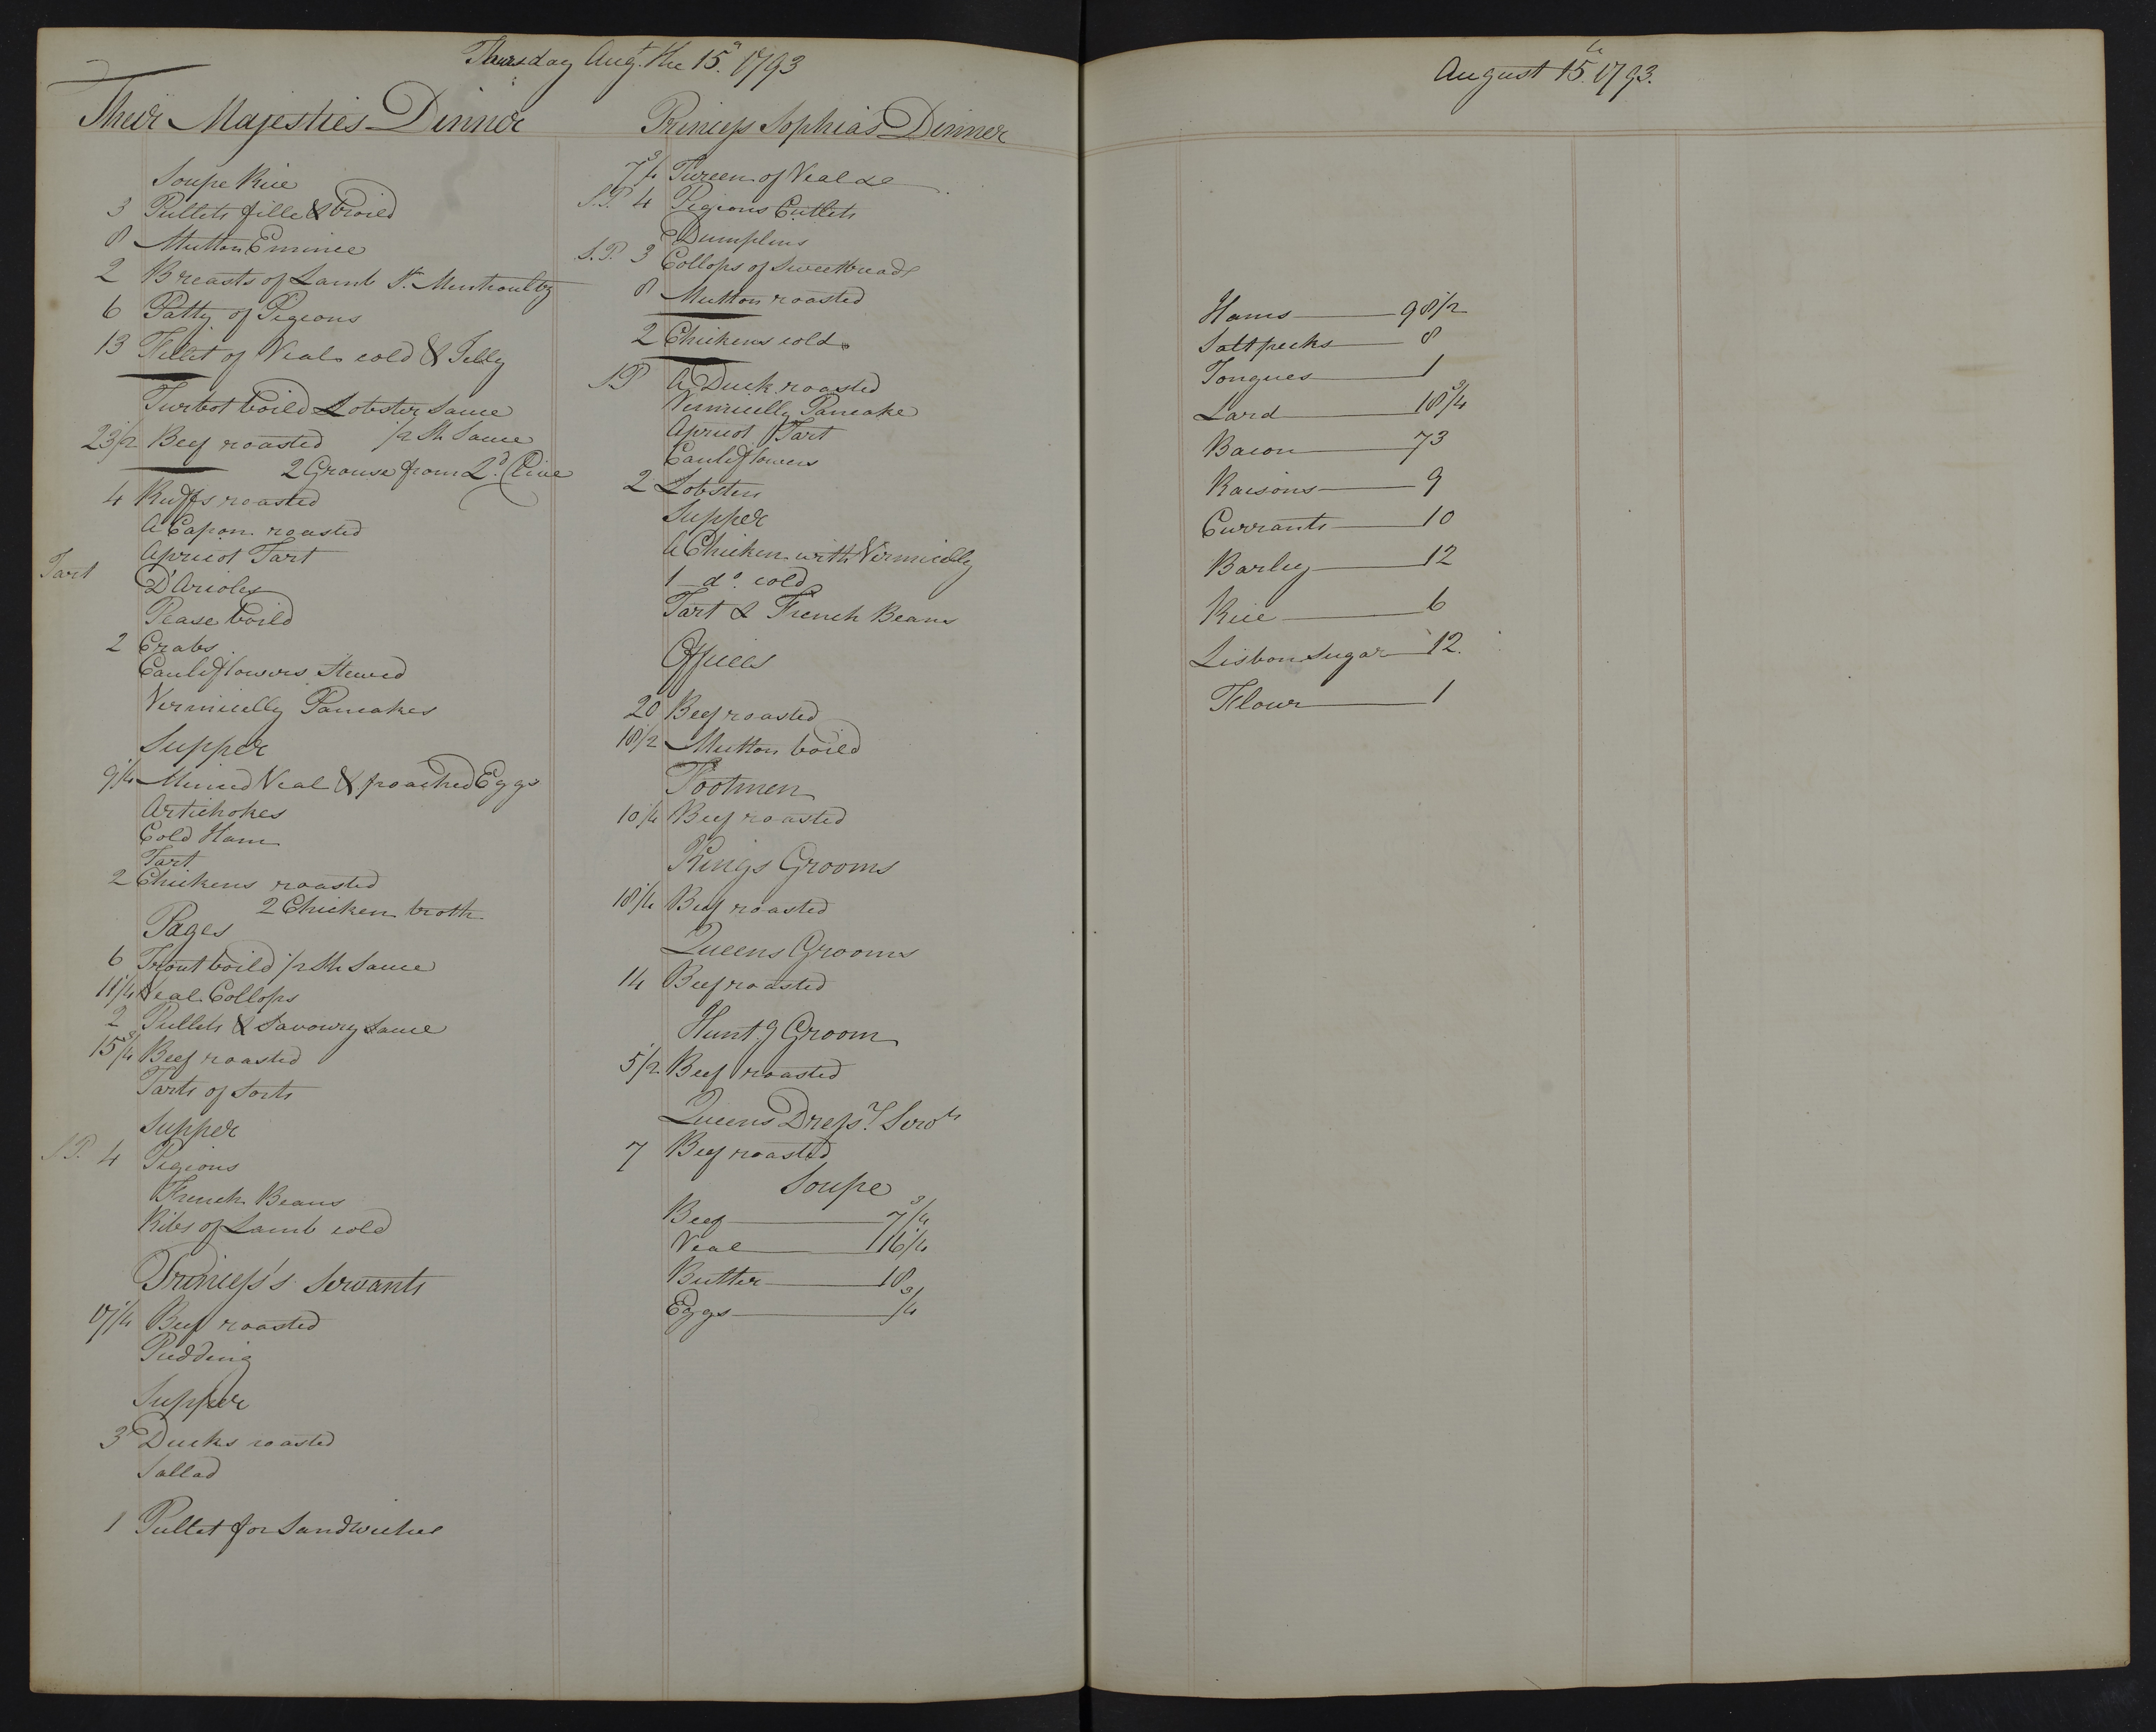 Thursday Augt. the 15th. 1793
Their Majesties Dinner
Soupe Rice
3 Pullets fille & broild
8 Mutton Emince
2 Breasts of Lamb St. Menhoulty
6 Patty of Pigeons
13 Fillet of Veal cold & Jelly
Turbot boild Lobster Sauce
23 1/2 Beef roasted 1/2 Sh Sauce
2 Grouse from Ld. Clive
4 Ruffs roasted
A Capon roasted
Apricot Tart
Tart D'Arioles
Pease boild
2 Crabs
Cauliflowers Stewed
Vermicelly Pancakes
Supper
9 1/4 Minced Veal & poached Eggs
Artichokes
Cold Ham
Tart
2 Chickens roasted
2 Chicken broth
Pages
6 Trout boild 1/2 Sh Sauce
11 1/4 Veal Collops
2 Pullets & Savoury Sauce
15 3/4 Beef roasted
Tarts of Sorts
Supper
S.P. 4 Pigeons
French Beans
Ribs of Lamb cold
Princess's Servants
17 1/4 Beef roasted
Pudding
Supper
3 Ducks roasted
Sallad
1 Pullet for Sandwiches
Princess Sophia's Dinner
7 3/4 Tureen of Veal &c
S.P. 4 Pigeons Cutlets
Dumplins
S.P. 3 Collops of Sweetbreads
8 Mutton roasted
2 Chickens cold
S.P A Duck roasted
Vermicelly Pancake
Apricot Tart
Cauliflowers
2 Lobsters
Supper
A Chicken with Vermicelly
1 do. cold
Tart & French Beans
Offices
20 Beef roasted
18 1/2 Mutton boild
Footmen
10 1/4 Beef roasted
Kings Grooms
18 1/4 Beef roasted
Queens Grooms
14 Beef roasted
Huntg Groom
5 1/2 Beef roasted
Queens Dressrs Servts
7 Beef roasted
Soupe
Beef 7 3/4
Veal 116 1/4
Butter 18
Eggs 3/4
August 15th. 1793.
Hams 98 1/2
Saltpeeks 8
Tongues 1
Lard 18 3/4
Bacon 73
Raisons 9
Currants 10
Barley 12
Rice 6
Lisbon Sugar 12.
Flour 1